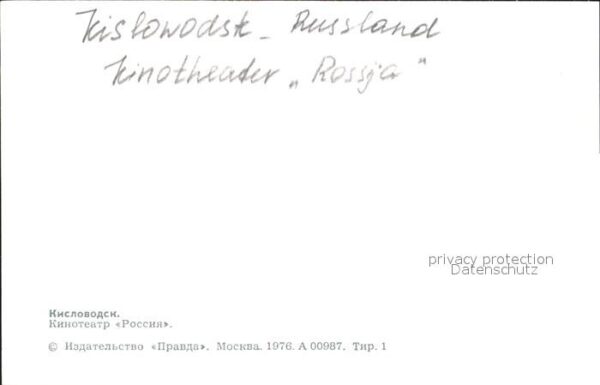 Kislowodsk - Russland
Kinotheater „Rossja"
privacy protection
Datenschutz
Кисловодск.
Кинотеатр «Россия».
© Издательство «Правда». Москва. 1976. А 00987. Тир. 1